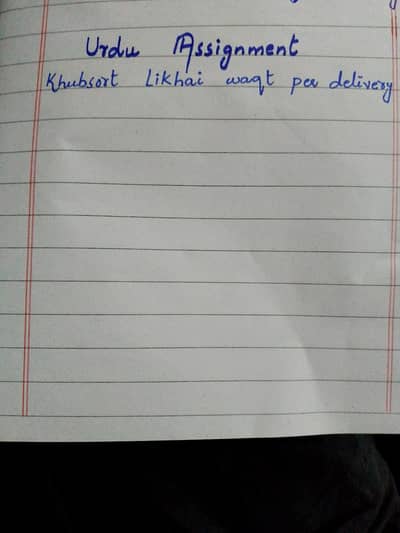 Urdu Assignment
Khubsort Likhai waqt per delivery